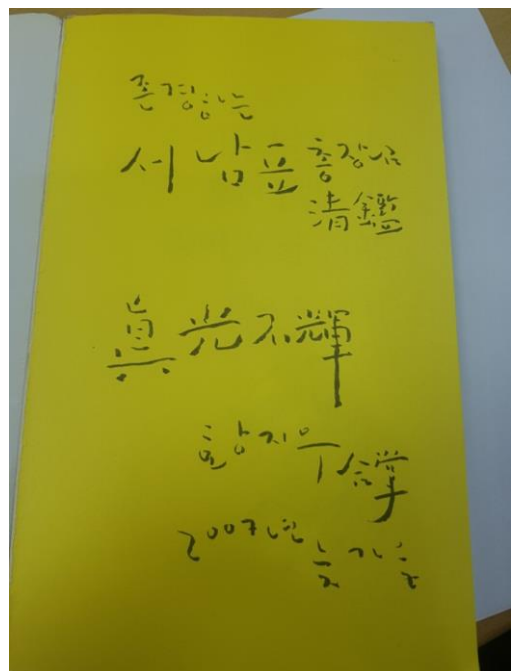 존경하는
서남표 총장님
淸鑑
眞光不輝
황지우 合掌
2007년 늦가을